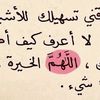 تني تسهيلك للأش
لا أعرف كيف أم
، اللَّهُمَّ الخيرة
شيء.